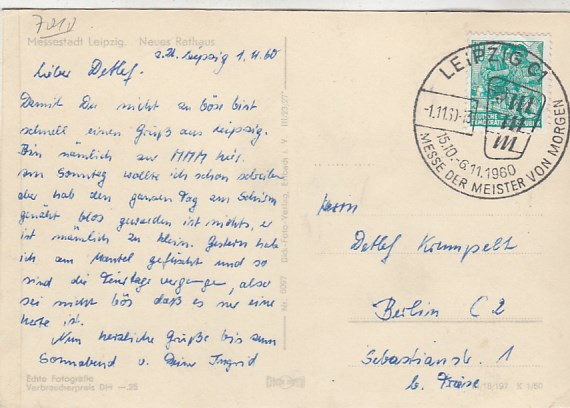 7010
Messestadt Leipzig. Neues Rathaus
z.Zt. Leipzig 1.11.60
Lieber Detlef.
Damit Du nicht zu böse bist
schnell einen Gruß aus Leipzig.
Bin nämlich zur MMM hier.
Am Sonntag wollte ich schon schreiben
aber hab den ganzen Tag am Schirm
genäht blos geworden ist nichts, er
ist nämlich zu klein. Gestern habe
ich am Mantel und so
sind die Feiertage vergangen, also
sei nicht bös daß es nur eine
Karte ist.
Nun herzliche Grüße bis zum
Sonnabend v. Deiner Ingrid
Echte Fotografie
Verbraucherpreis DM —.25
Nr. 9097 Dick Foto-Verlag, Erlbach i. V.
LEIPZIG C1
-1.11.60
15.10.-6.11.1960
MESSE DER MEISTER VON MORGEN
DEUTSCHE
Herrn
Detlef Krumpelt
Berlin C 2
Sebastianstr. 1
b. Friese